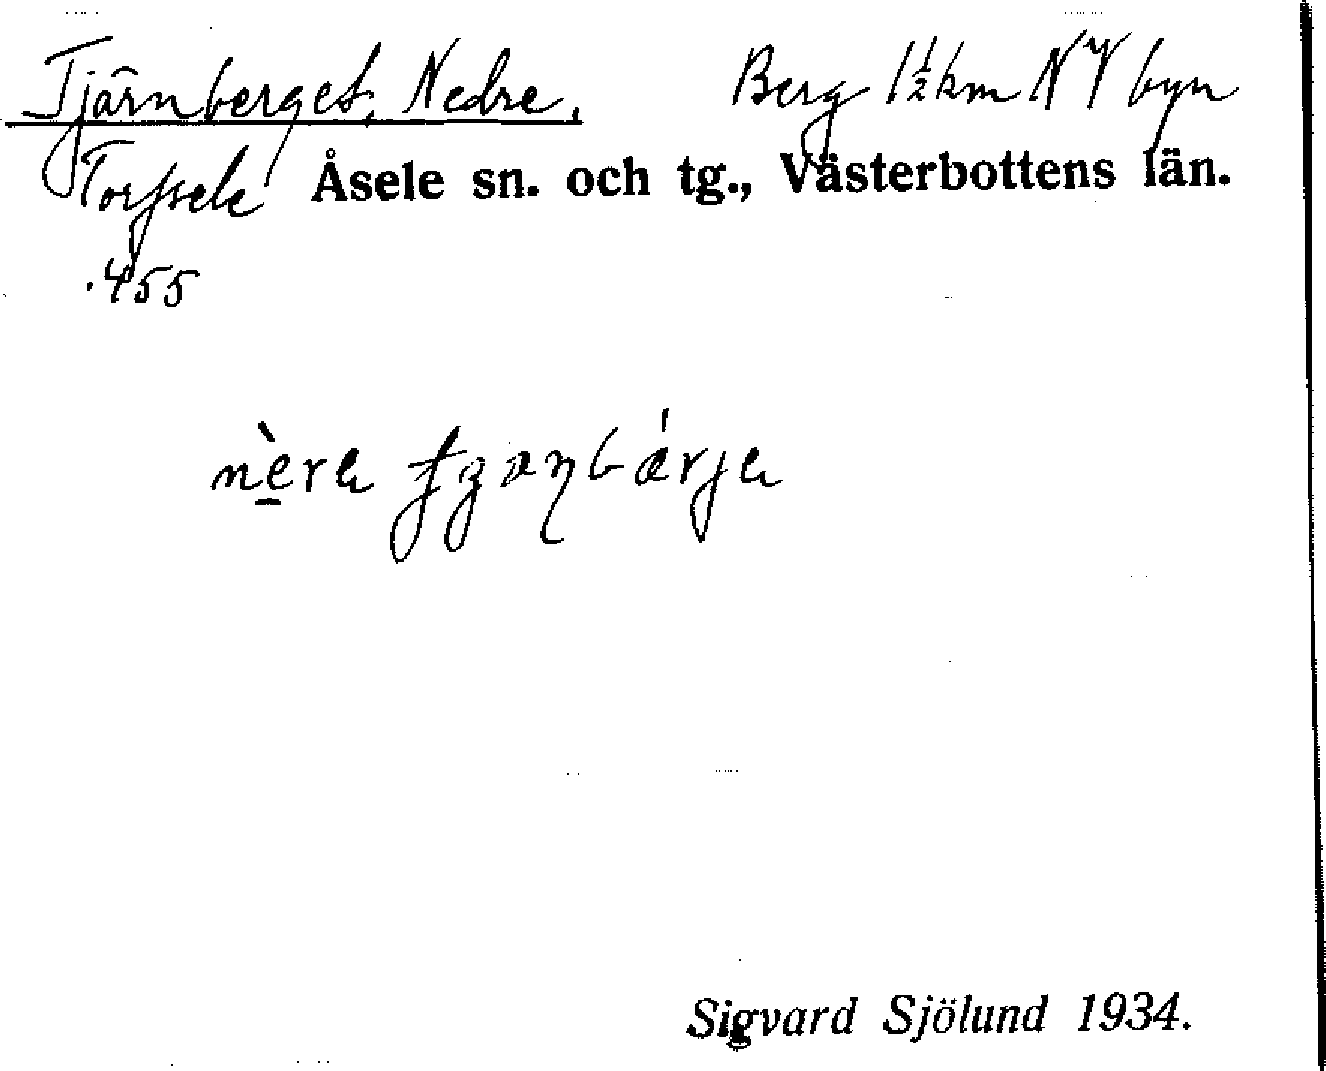 Tjärnberget, Nedre, Berg 1½ km NV byn
Torpsele Åsele sn. och tg., Västerbottens län.
.455
Sigvard Sjölund 1934.